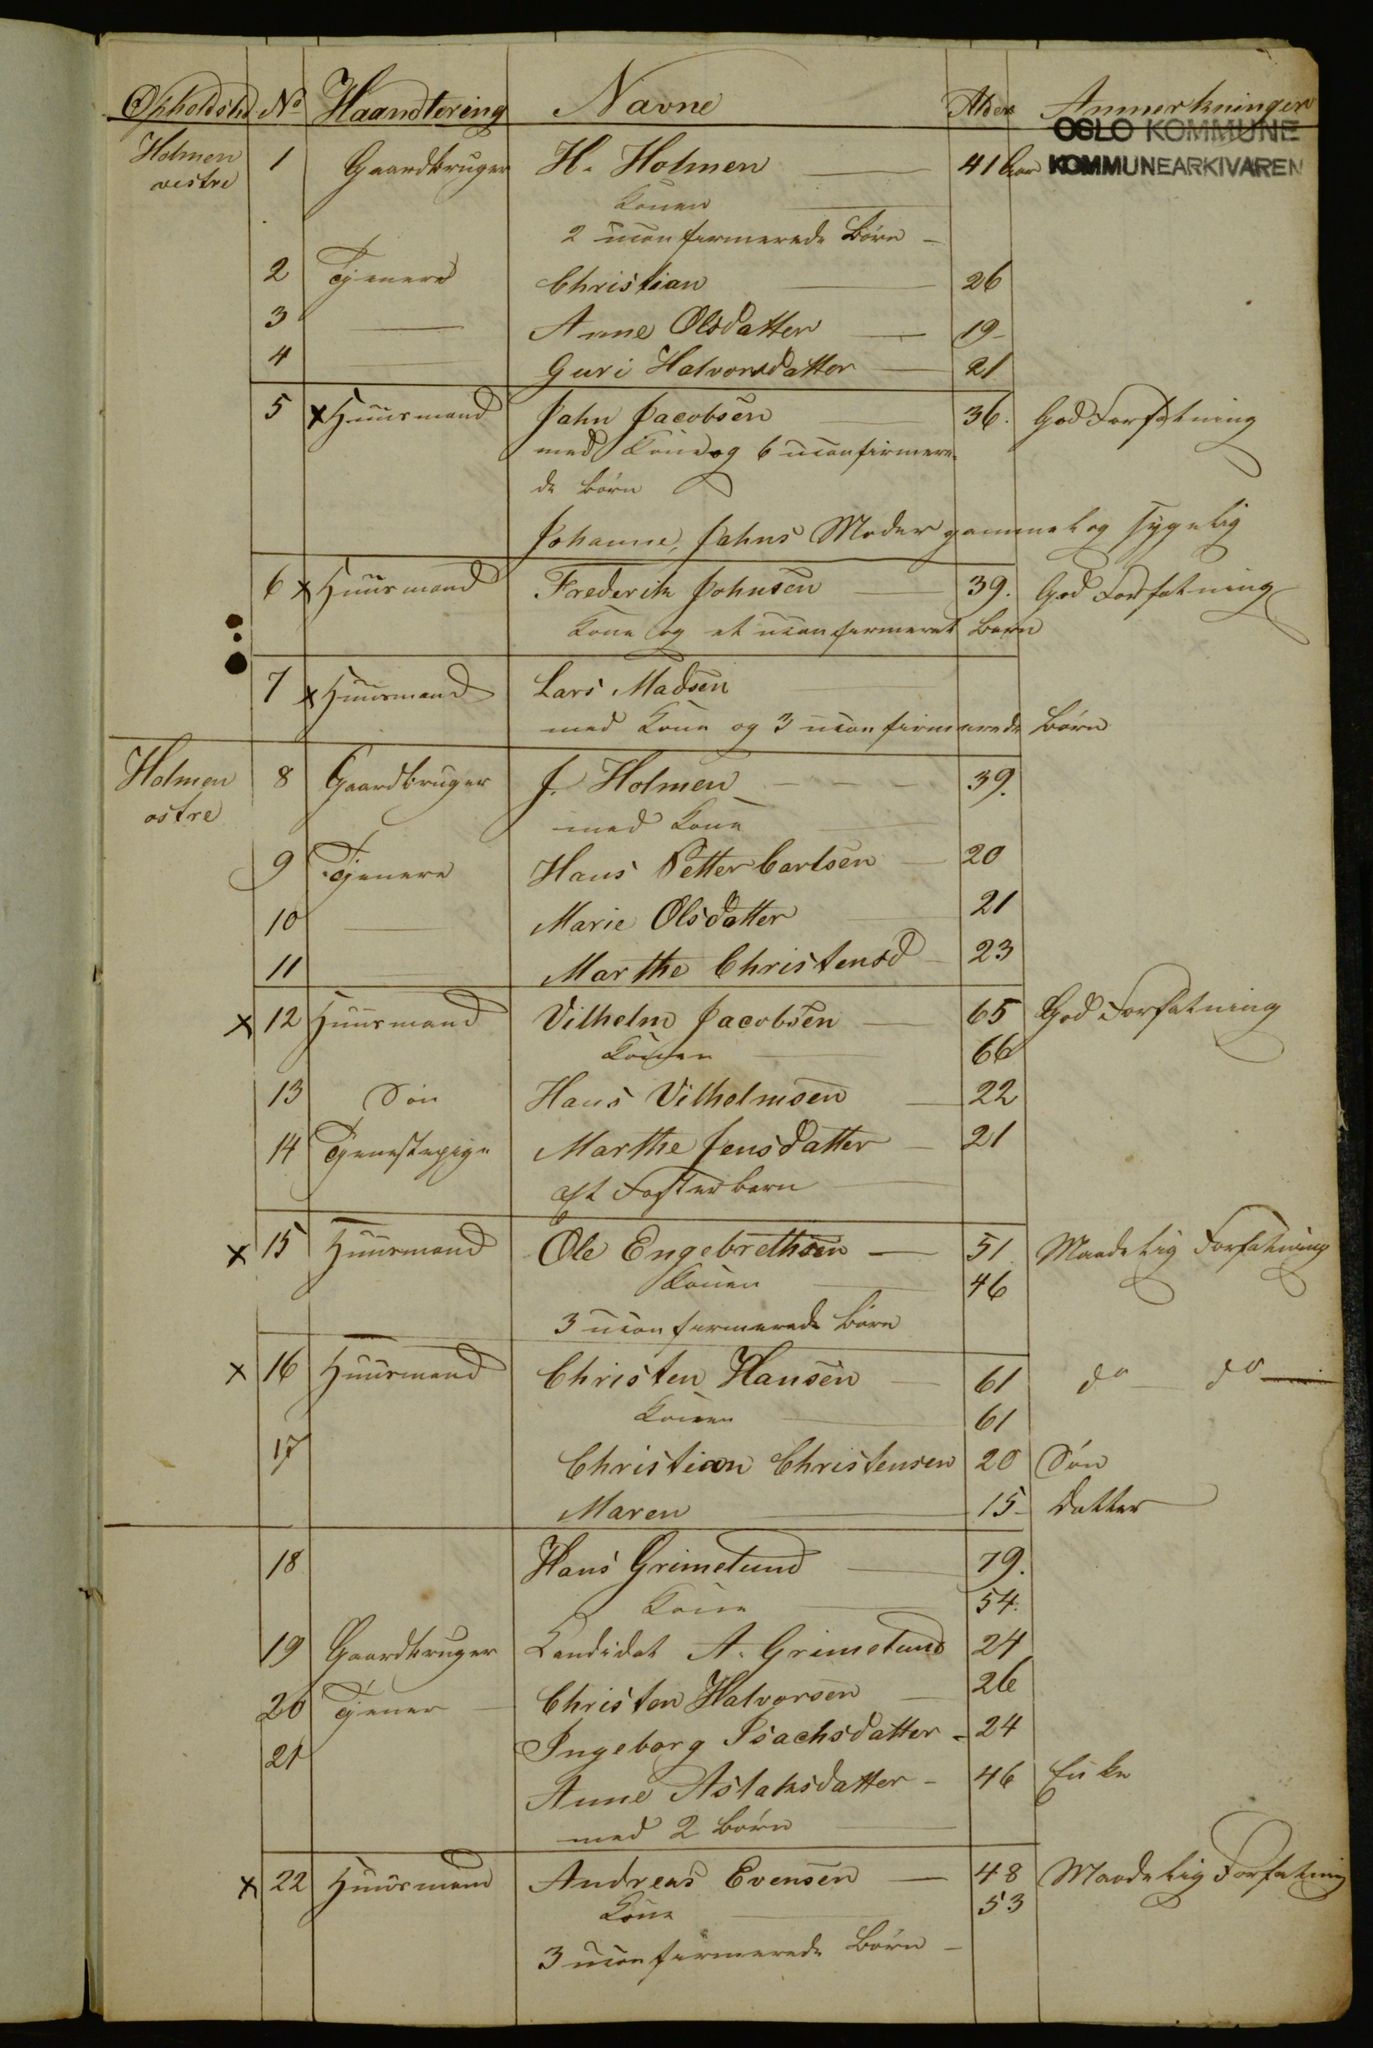 Opholdstd No Haandtering Navne Alder Anmerkninger
OSLO KOMMUNE
KOMMUNEARKIVAREN
Holmen vestre 1 Gaardbruger H. Holmen 41 Aar
Konen
2 uconfirmerede Børn
2 Tjenere Christian 26
3 Anne Olsdatter 19
4 Guri Halvorsdatter 21
5 x Huusmand Jahn Jacobsen 36. God Forfatning
med Kone og 6 uconfirmere-
de børn
Johanne, Jahns Moder gammel og sygelig
6 x Huusmand Frederik Johnsen 39. God Forfatning
Kone og et uconfirmeret Barn
7 x Huusmand Lars Madsen
med Kone og 3 uconfirmerede Børn
Holmen østre 8 Gaardbruger J. Holmen 39.
med Kone
9 Tjenere Hans Petter Carlsen 20
10 Marie Olsdatter 21
11 Marthe Christensd 23
x 12 Huusmand Vilhelm Jacobsen 65 God Forfatning
Konen 66
13 Søn Hans Vilhelmsen 22
14 Tjenestepige Marthe Jensdatter 21
Et Fosterbarn
x 15 Huusmand Ole Engebrethsen 51 Maadelig Forfatning
Konen 46
3 uconfirmerede Børn
x 16 Huusmand Christen Hansen 61 do do
Konen 61
17 Christian Christensen 20 Søn
Maren 15 Datter
18 Hans Grimelund 79.
Kone 54.
19 Gaardbruger Kandidat A. Grimelund 24
20 Tjener Christen Halvorsen 26
21 Ingeborg Isachsdatter 24
Anne Aslaksdatter 46 Enke
med 2 børn
x 22 Huusmand Andreas Evensen 48 Maadelig Forfatning
Kone 53
3 uconfirmerede Børn